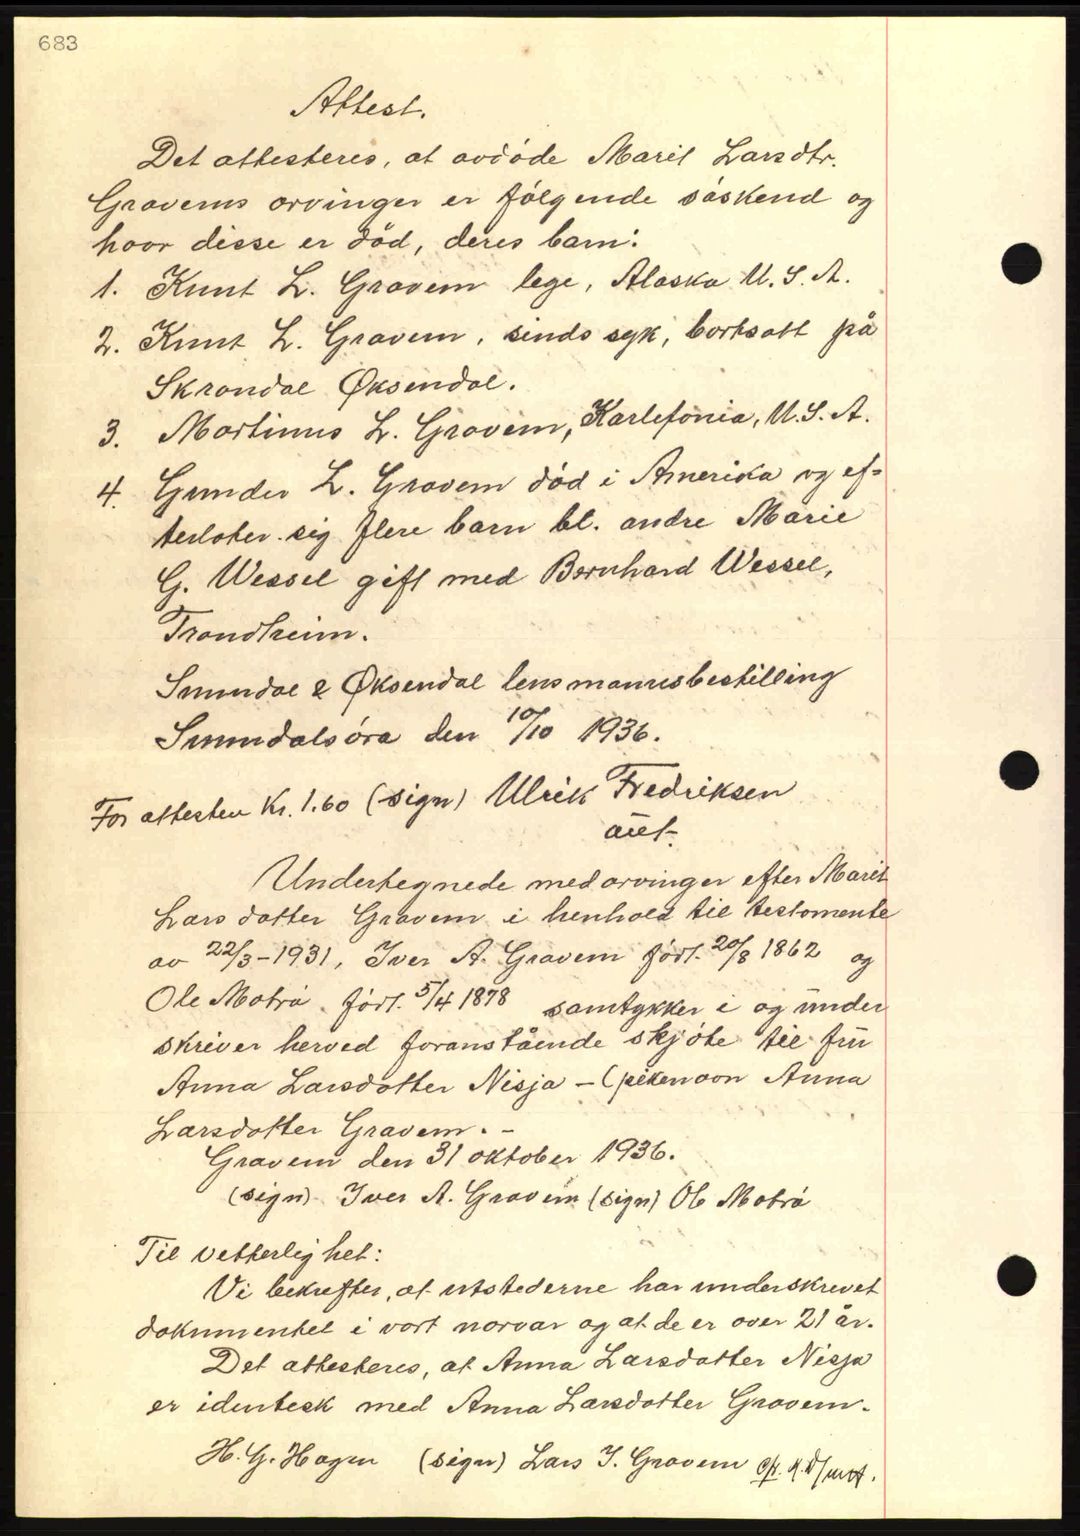 683
Attest.
Det attesteres, at avdøde Marit Larsdtr.
Gravems arvinger er følgende søskend og
hvor disse er død, deres barn:
1. Knut L. Gravem lege, Alaska U.S.A.
2. Knut L. Gravem, sinds syk, bortsatt på
Skrondal Øksendal.
3. Martinus L. Gravem, Karlefonia, U.S.A.
4. Gunder L. Gravem død i Amerika og ef=
terlater sig flere barn bl. andre Marie
G. Wessel gift med Bernhard Wessel,
Trondheim.
Sunndal & Øksendal lensmannsbestilling
Sunndalsøra den 10/10 1936.
For attesten Kr. 1.60 (sign) Ulrik Fredriksen
aut.
Undertegnede medarvinger efter Marit
Larsdatter Gravem i henhold til testamente
av 22/3-1931, Iver A. Gravem født 20/8 1862 og
Ole Motrø født 5/4 1878 samtykker i og under
skriver herved foranstående skjøte til fru
Anna Larsdatter Nisja - (pikenavn Anna
Larsdatter Gravem. -
Gravem den 31 oktober 1936.
(sign) Iver A. Gravem (sign) Ole Motrø
Til vetterlighet:
Vi bekrefter, at utstederne har underskrevet
dokumentet i vort nærvær og at de er over 21 år.
Det attesteres, at Anna Larsdatter Nisja
er identesk med Anna Larsdatter Gravem.
H. G. Hagen (sign) Lars I. Gravem